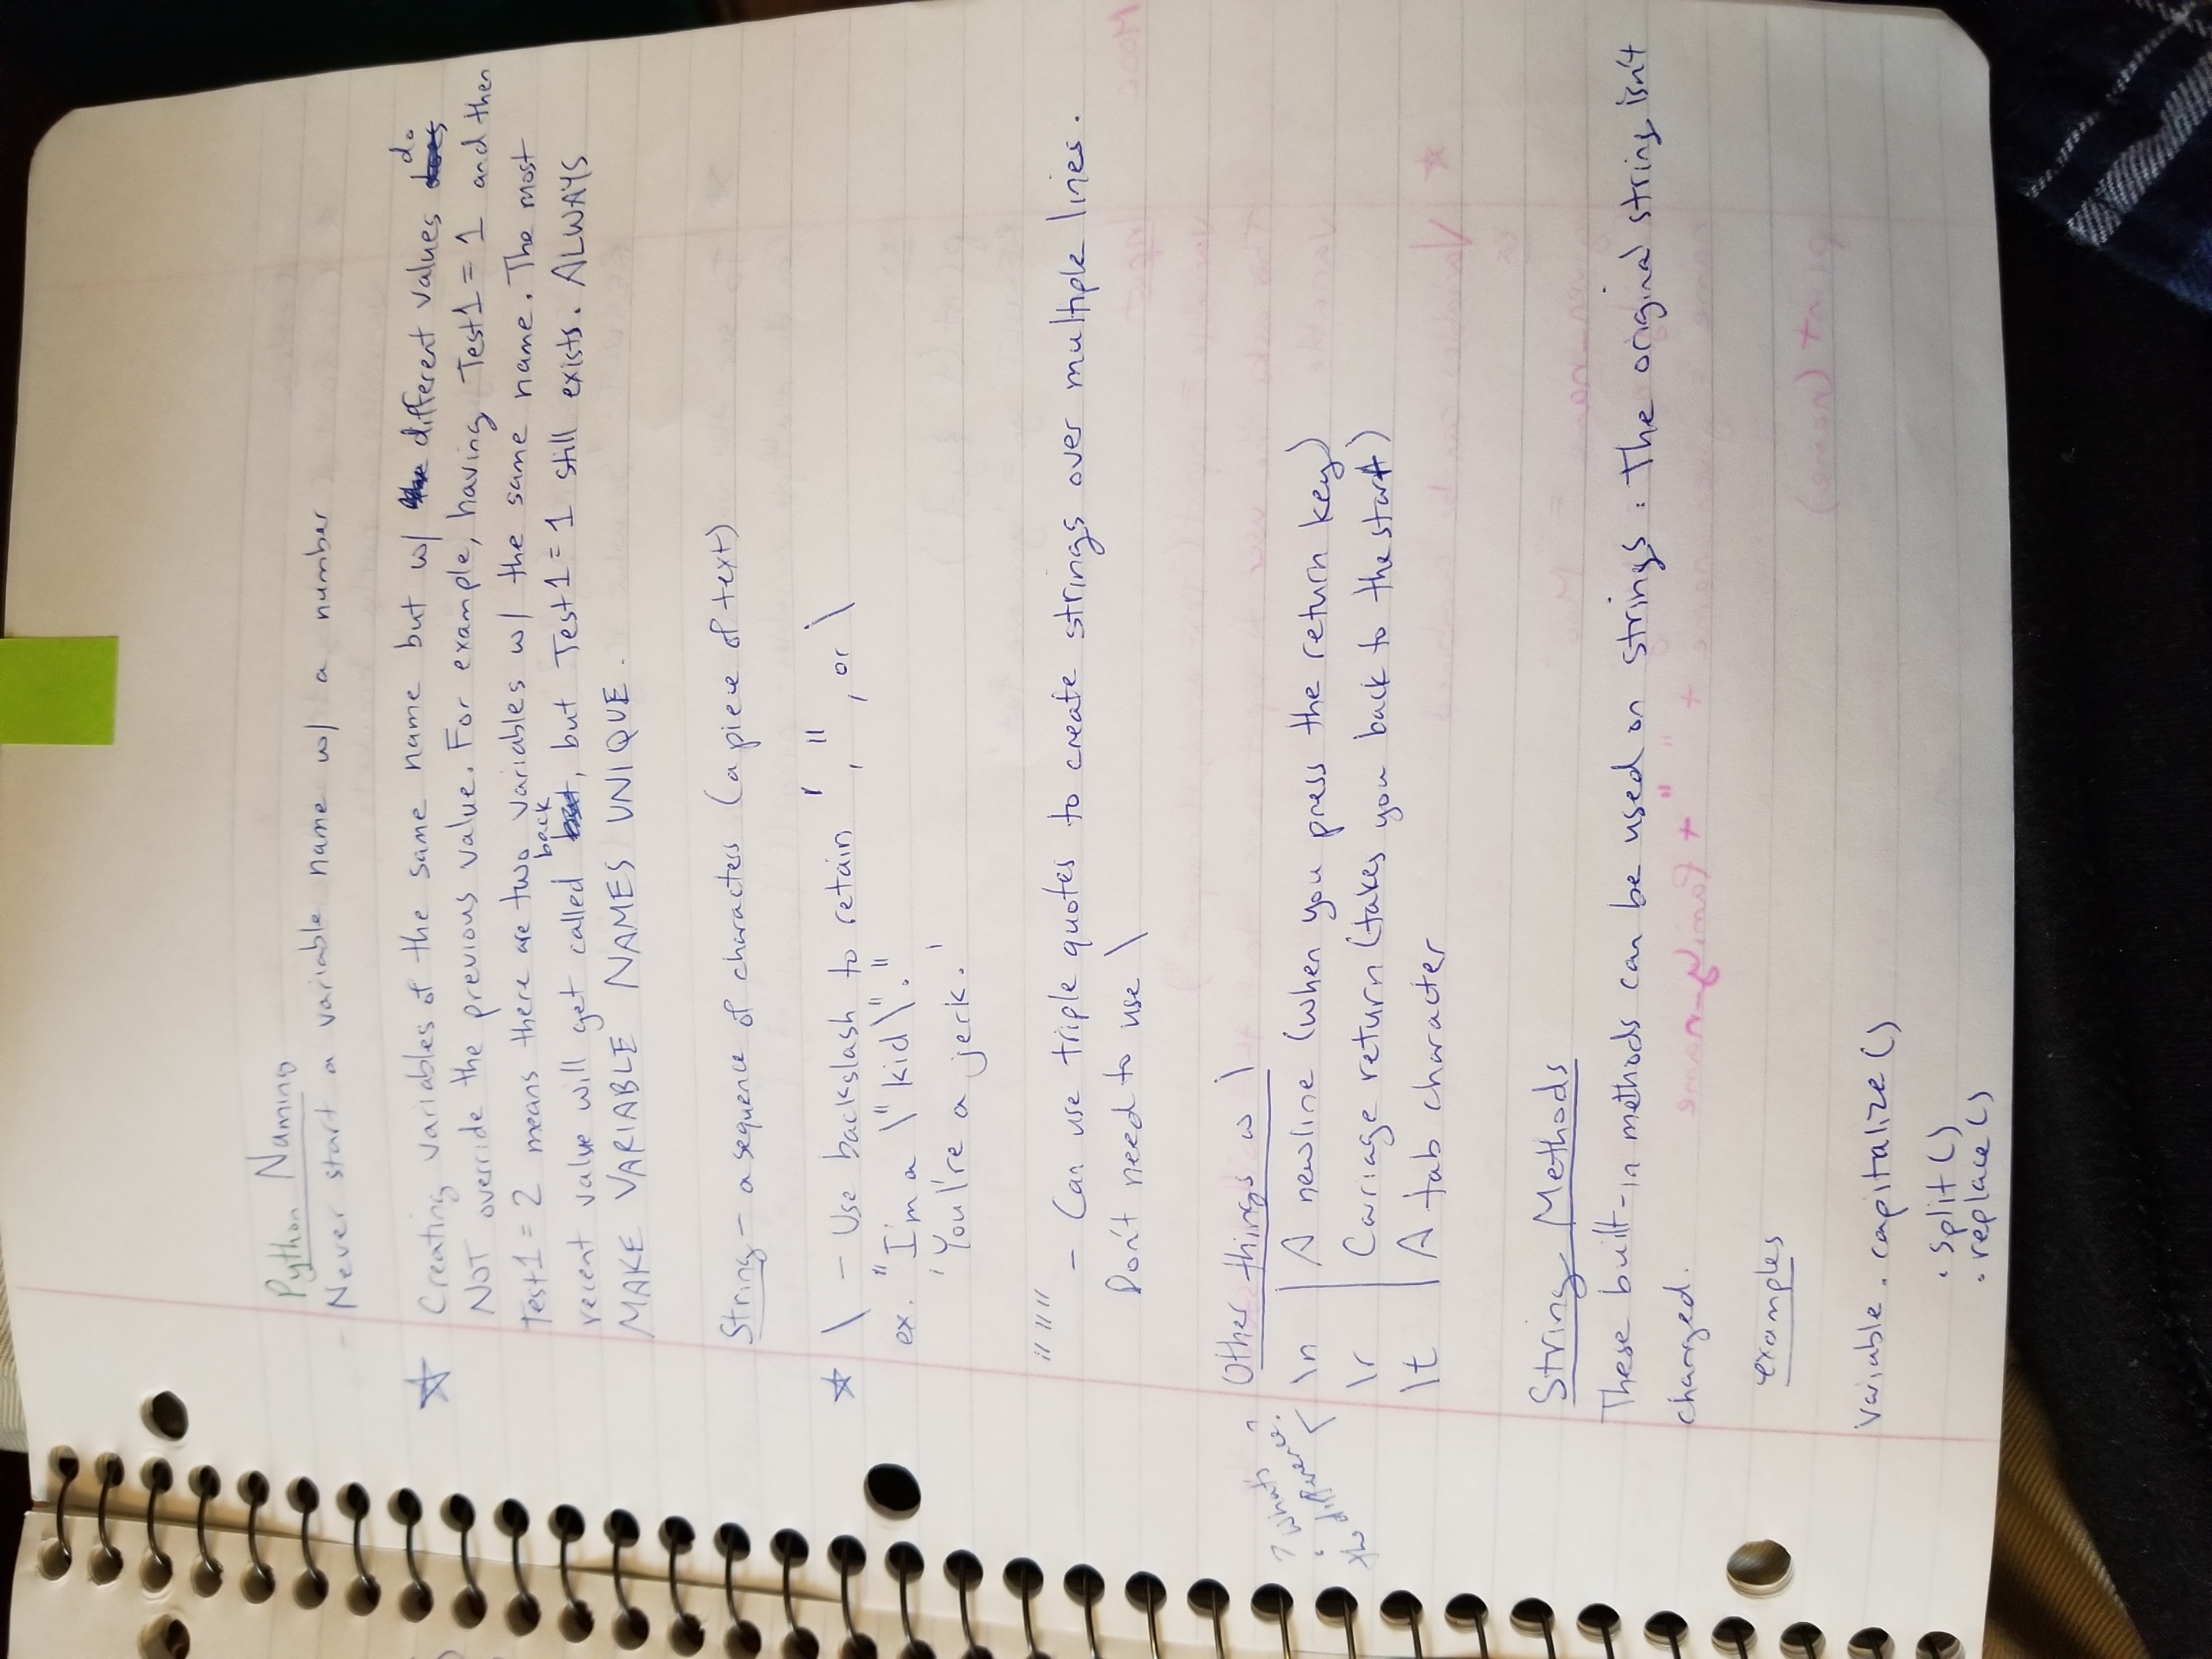 Python Naming
- Never start a variable name w/ a number
☆ Creating variables of the same name but w/ different values do
NOT override the previous value. For example, having Test1 = 1 and then
Test1 = 2 means there are two variables w/ the same name. The most
recent value will get called back, but Test1 = 1 still exists. ALWAYS
MAKE VARIABLE NAMES UNIQUE.
String - a sequence of characters (a piece of text)
☆ \ - Use backslash to retain ', ", or \
ex. "I'm a \"kid\"."
'You\'re a jerk.'
""" - Can use triple quotes to create strings over multiple lines.
Don't need to use \
Other things w \
? What's
the difference?
\n | A newline (when you press the return key)
\r | Carriage return (takes you back to the start)
\t | A tab character
String Methods
These built-in methods can be used on strings. The original string isn't
changed.
examples
Variable . capitalize()
. split()
. replace()